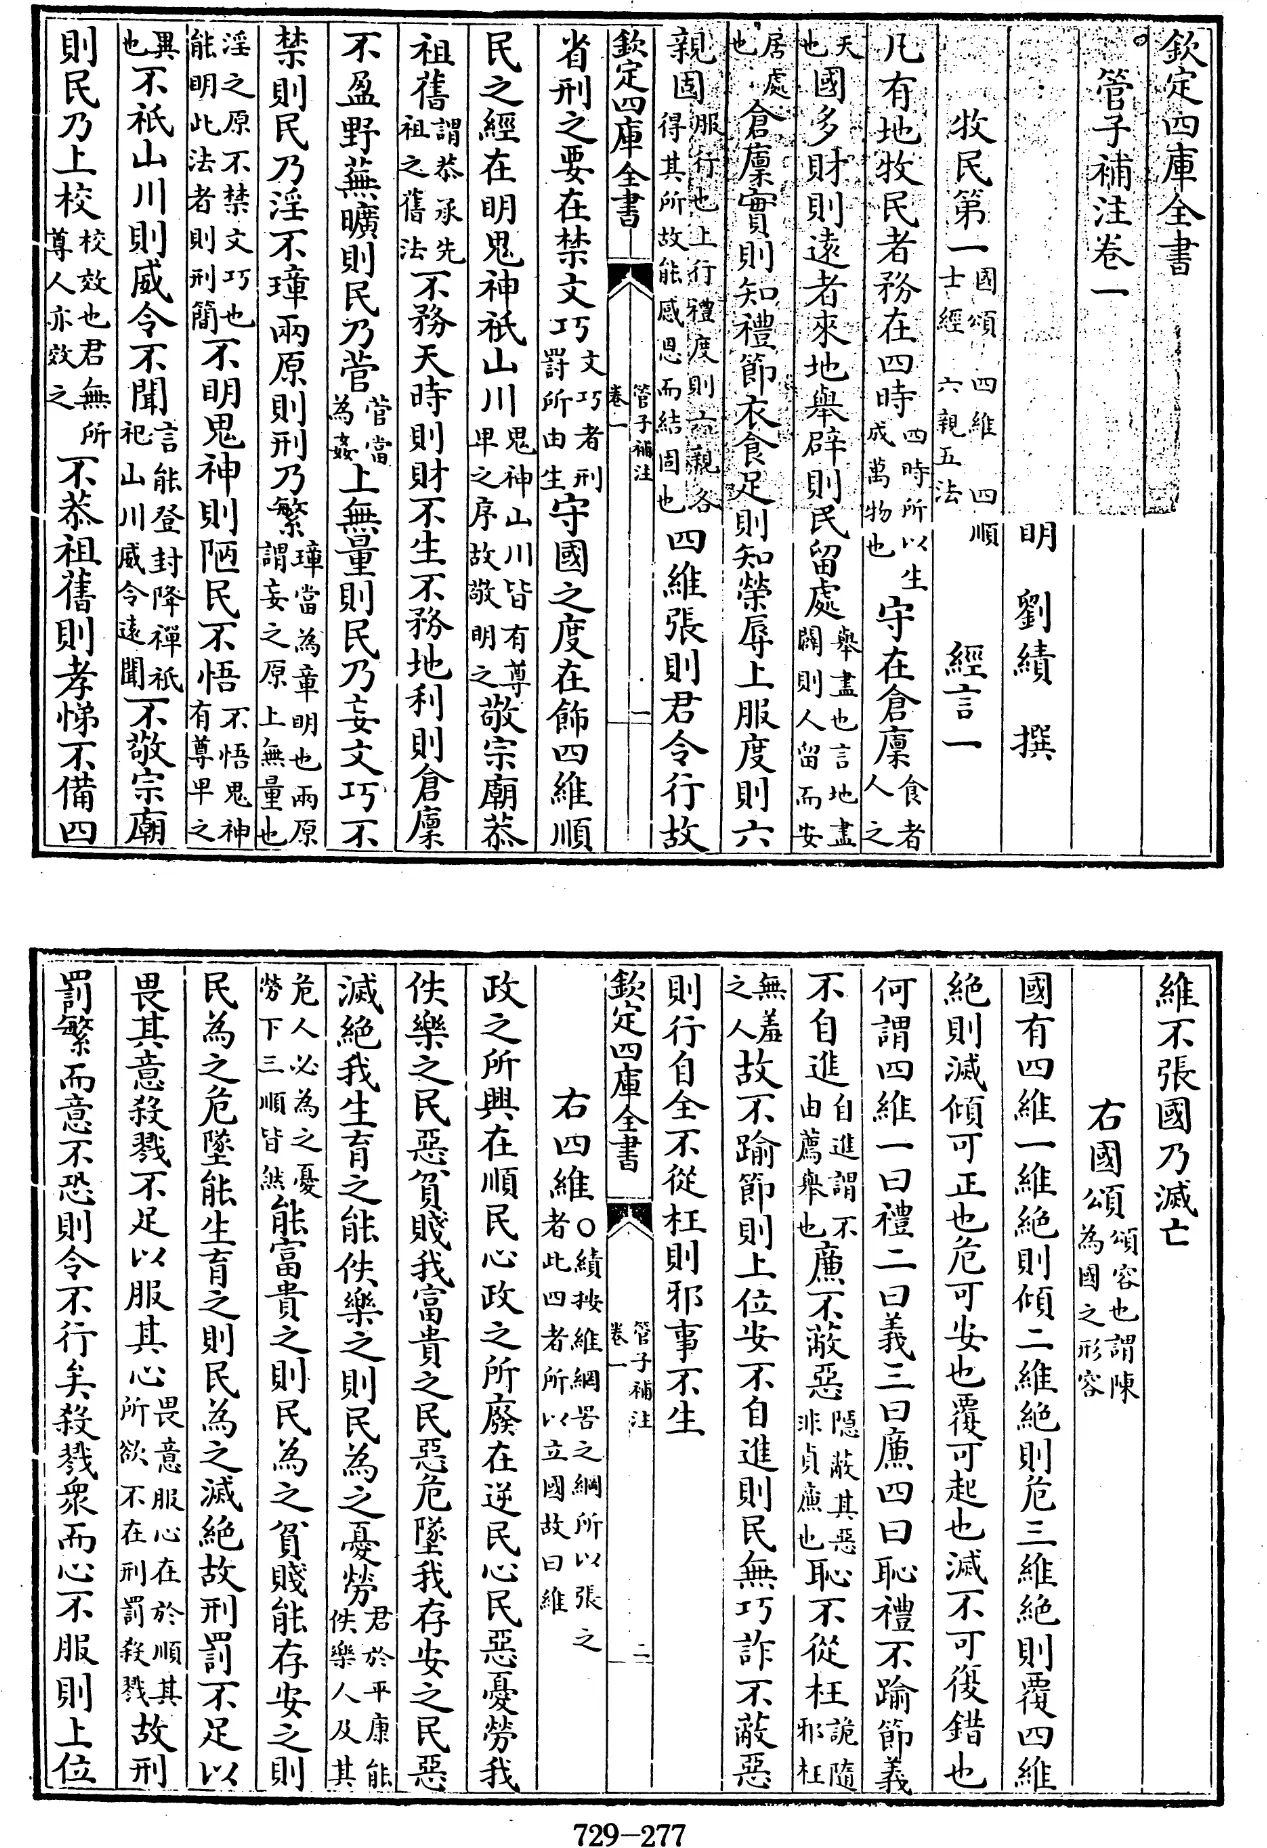 欽定四庫全書
管子補注卷一
明 劉績 撰
牧民第一 國頌 四維 四順 士經 六親五法 經言一
凡有地牧民者務在四時四時所以生成萬物也守在倉廩食者人之
天也國多財則遠者來地舉辟則民留處舉盡也言地盡闢則人留而安
居處也倉廩實則知禮節衣食足則知榮辱上服度則六
親固服行也上行禮度則六親各得其所故能感恩而結固也四維張則君令行故
欽定四庫全書 管子補注 卷一 一
省刑之要在禁文巧文巧者刑罰所由生守國之度在飾四維順
民之經在明鬼神祇山川鬼神山川皆有尊卑之序故敬明之敬宗廟恭
祖舊謂恭承先祖之舊法不務天時則財不生不務地利則倉廩
不盈野蕪曠則民乃菅菅當為姦上無量則民乃妄文巧不
禁則民乃淫不璋兩原則刑乃繁璋當為章明也兩原謂妄之原上無量也
淫之原不禁文巧也能明此法者則刑簡不明鬼神則陋民不悟不悟鬼神有尊卑之
異也不祇山川則威令不聞言能登封降禪祇祀山川威令遠聞不敬宗廟
則民乃上校校效也君無所尊人亦效之不恭祖舊則孝悌不備四
維不張國乃滅亡
右國頌頌容也謂陳為國之形容
國有四維一維絕則傾二維絕則危三維絕則覆四維
絕則滅傾可正也危可安也覆可起也滅不可復錯也
何謂四維一曰禮二曰義三曰廉四曰恥禮不踰節義
不自進自進謂不由薦舉也廉不蔽惡隱蔽其惡非貞廉也恥不從枉詭隨邪枉
無羞之人故不踰節則上位安不自進則民無巧詐不蔽惡
則行自全不從枉則邪事不生
欽定四庫全書 管子補注 卷一 二
右四維○績按維網罟之綱所以張之者此四者所以立國故曰維
政之所興在順民心政之所廢在逆民心民惡憂勞我
佚樂之民惡貧賤我富貴之民惡危墜我存安之民惡
滅絕我生育之能佚樂之則民為之憂勞君於平康能佚樂人及其
危人必為之憂勞下三順皆然能富貴之則民為之貧賤能存安之則
民為之危墜能生育之則民為之滅絕故刑罰不足以
畏其意殺戮不足以服其心畏意服心在於順其所欲不在刑罰殺戮故刑
罰繁而意不恐則令不行矣殺戮衆而心不服則上位
729-277